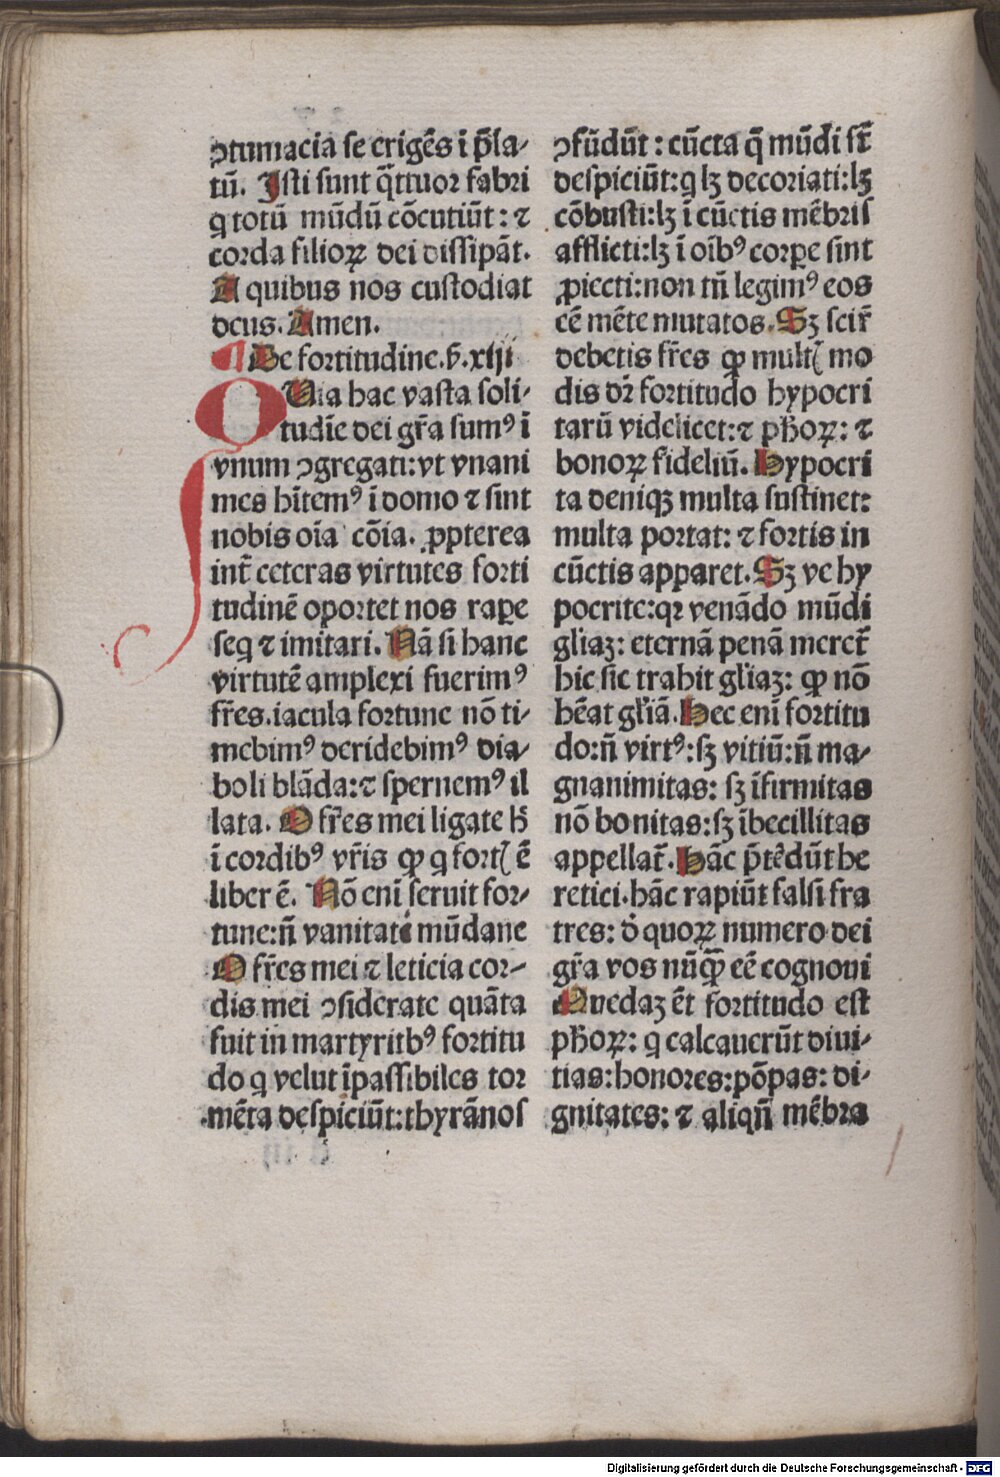 ↄtumacia se erigēs ī p̄la-
tū. Isti sunt q̄ttuor fabri
q totū mūdū cōcutiūt: ⁊
corda filioꝝ dei dissipāt.
A quibus nos custodiat
deus. Amen.
¶ De fortitudine. ẜ. xiij
QUia hac vasta soli-
tudīe dei gr̄a sumꝰ ī
vnum ↄgregati: vt vnani
mes hītemꝰ ī domo ⁊ sint
nobis oīa cōia. ꝓpterea
int̄ ceteras virtutes forti
tudinē oportet nos raꝑe
seq ⁊ imitari. Nā si hanc
virtutē amplexi fuerimꝰ
fr̄es. iacula fortune nō ti-
mebimꝰ deridebimꝰ dia-
boli blāda: ⁊ spernemꝰ il
lata. O fr̄es mei ligate ħ
ī cordibꝰ vr̄is ꝙ q fortꝭ ē
liber ē. Nō enī seruit for-
tune: n̄ vanitati mūdane
O fr̄es mei ⁊ leticia cor-
dis mei ↄsiderate quāta
fuit in martyribꝰ fortitu
do q velut īpassibiles tor
mēta despiciūt: thyrānos
ↄfūdūt: cūcta q̄ mūdi st̄
despiciūt: q lꝫ decoriati: lꝫ
cōbusti: lꝫ ī cūctis mēbris
afflicti: lꝫ ī oībꝰ corꝑe sint
ꝓiecti: non tn̄ legimꝰ eos
eē mēte mutatos. Sꝫ scir̄
debetis fr̄es ꝙ multꝭ mo
dis dr̄ fortitudo hypocri
tarū videlicet: ⁊ ph̄oꝝ: ⁊
bonoꝝ fideliū. Hypocri
ta deniqꝫ multa sustinet:
multa portat: ⁊ fortis in
cūctis apparet. Sꝫ ve hy
pocrite: qꝛ venādo mūdi
gl̄iaꝫ: eternā penā meret̄
hic sic trahit gl̄iaꝫ: ꝙ nō
hēat gl̄iā. Hec enī fortitu
do: n̄ virtꝰ: sꝫ vitiū: n̄ ma-
gnanimitas: sꝫ īfirmitas
nō bonitas: sꝫ ībecillitas
appellat̄. Hāc p̄tēdūt he
retici. hāc rapiūt falsi fra
tres: d̓ quoꝝ numero dei
gr̄a vos nūꝙ̄ eē cognoui
Quedaꝫ ēt fortitudo est
ph̄oꝝ: q calcauerūt diui-
tias: honores: pōpas: di-
gnitates: ⁊ aliqn̄ mēbra
Digitalisierung gefördert durch die Deutsche Forschungsgemeinschaft - DFG